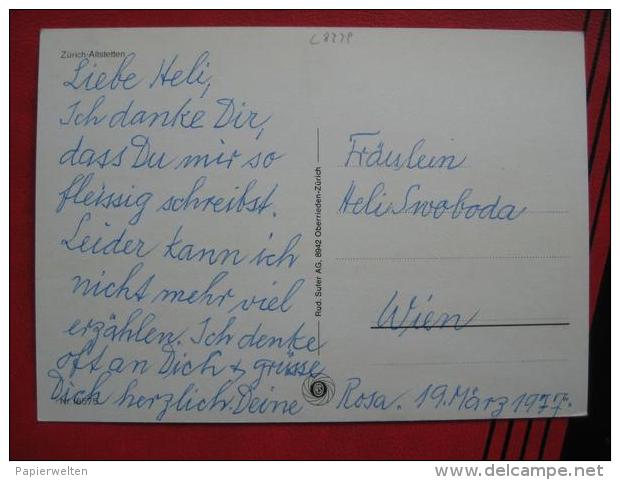 Zürich-Altstetten
Liebe Heli,
Ich danke Dir,
dass Du mir so
fleissig schreibst.
Leider kann ich
nicht mehr viel
erzählen. Ich denke
oft an Dich & grüsse
Dich herzlich Deine
Rosa. 19. März 1977.
Rud. Suter AG, 8942 Oberrieden-Zürich
Fräulein
Heli Swoboda
Wien
Papierwelten
www.delcampe.net